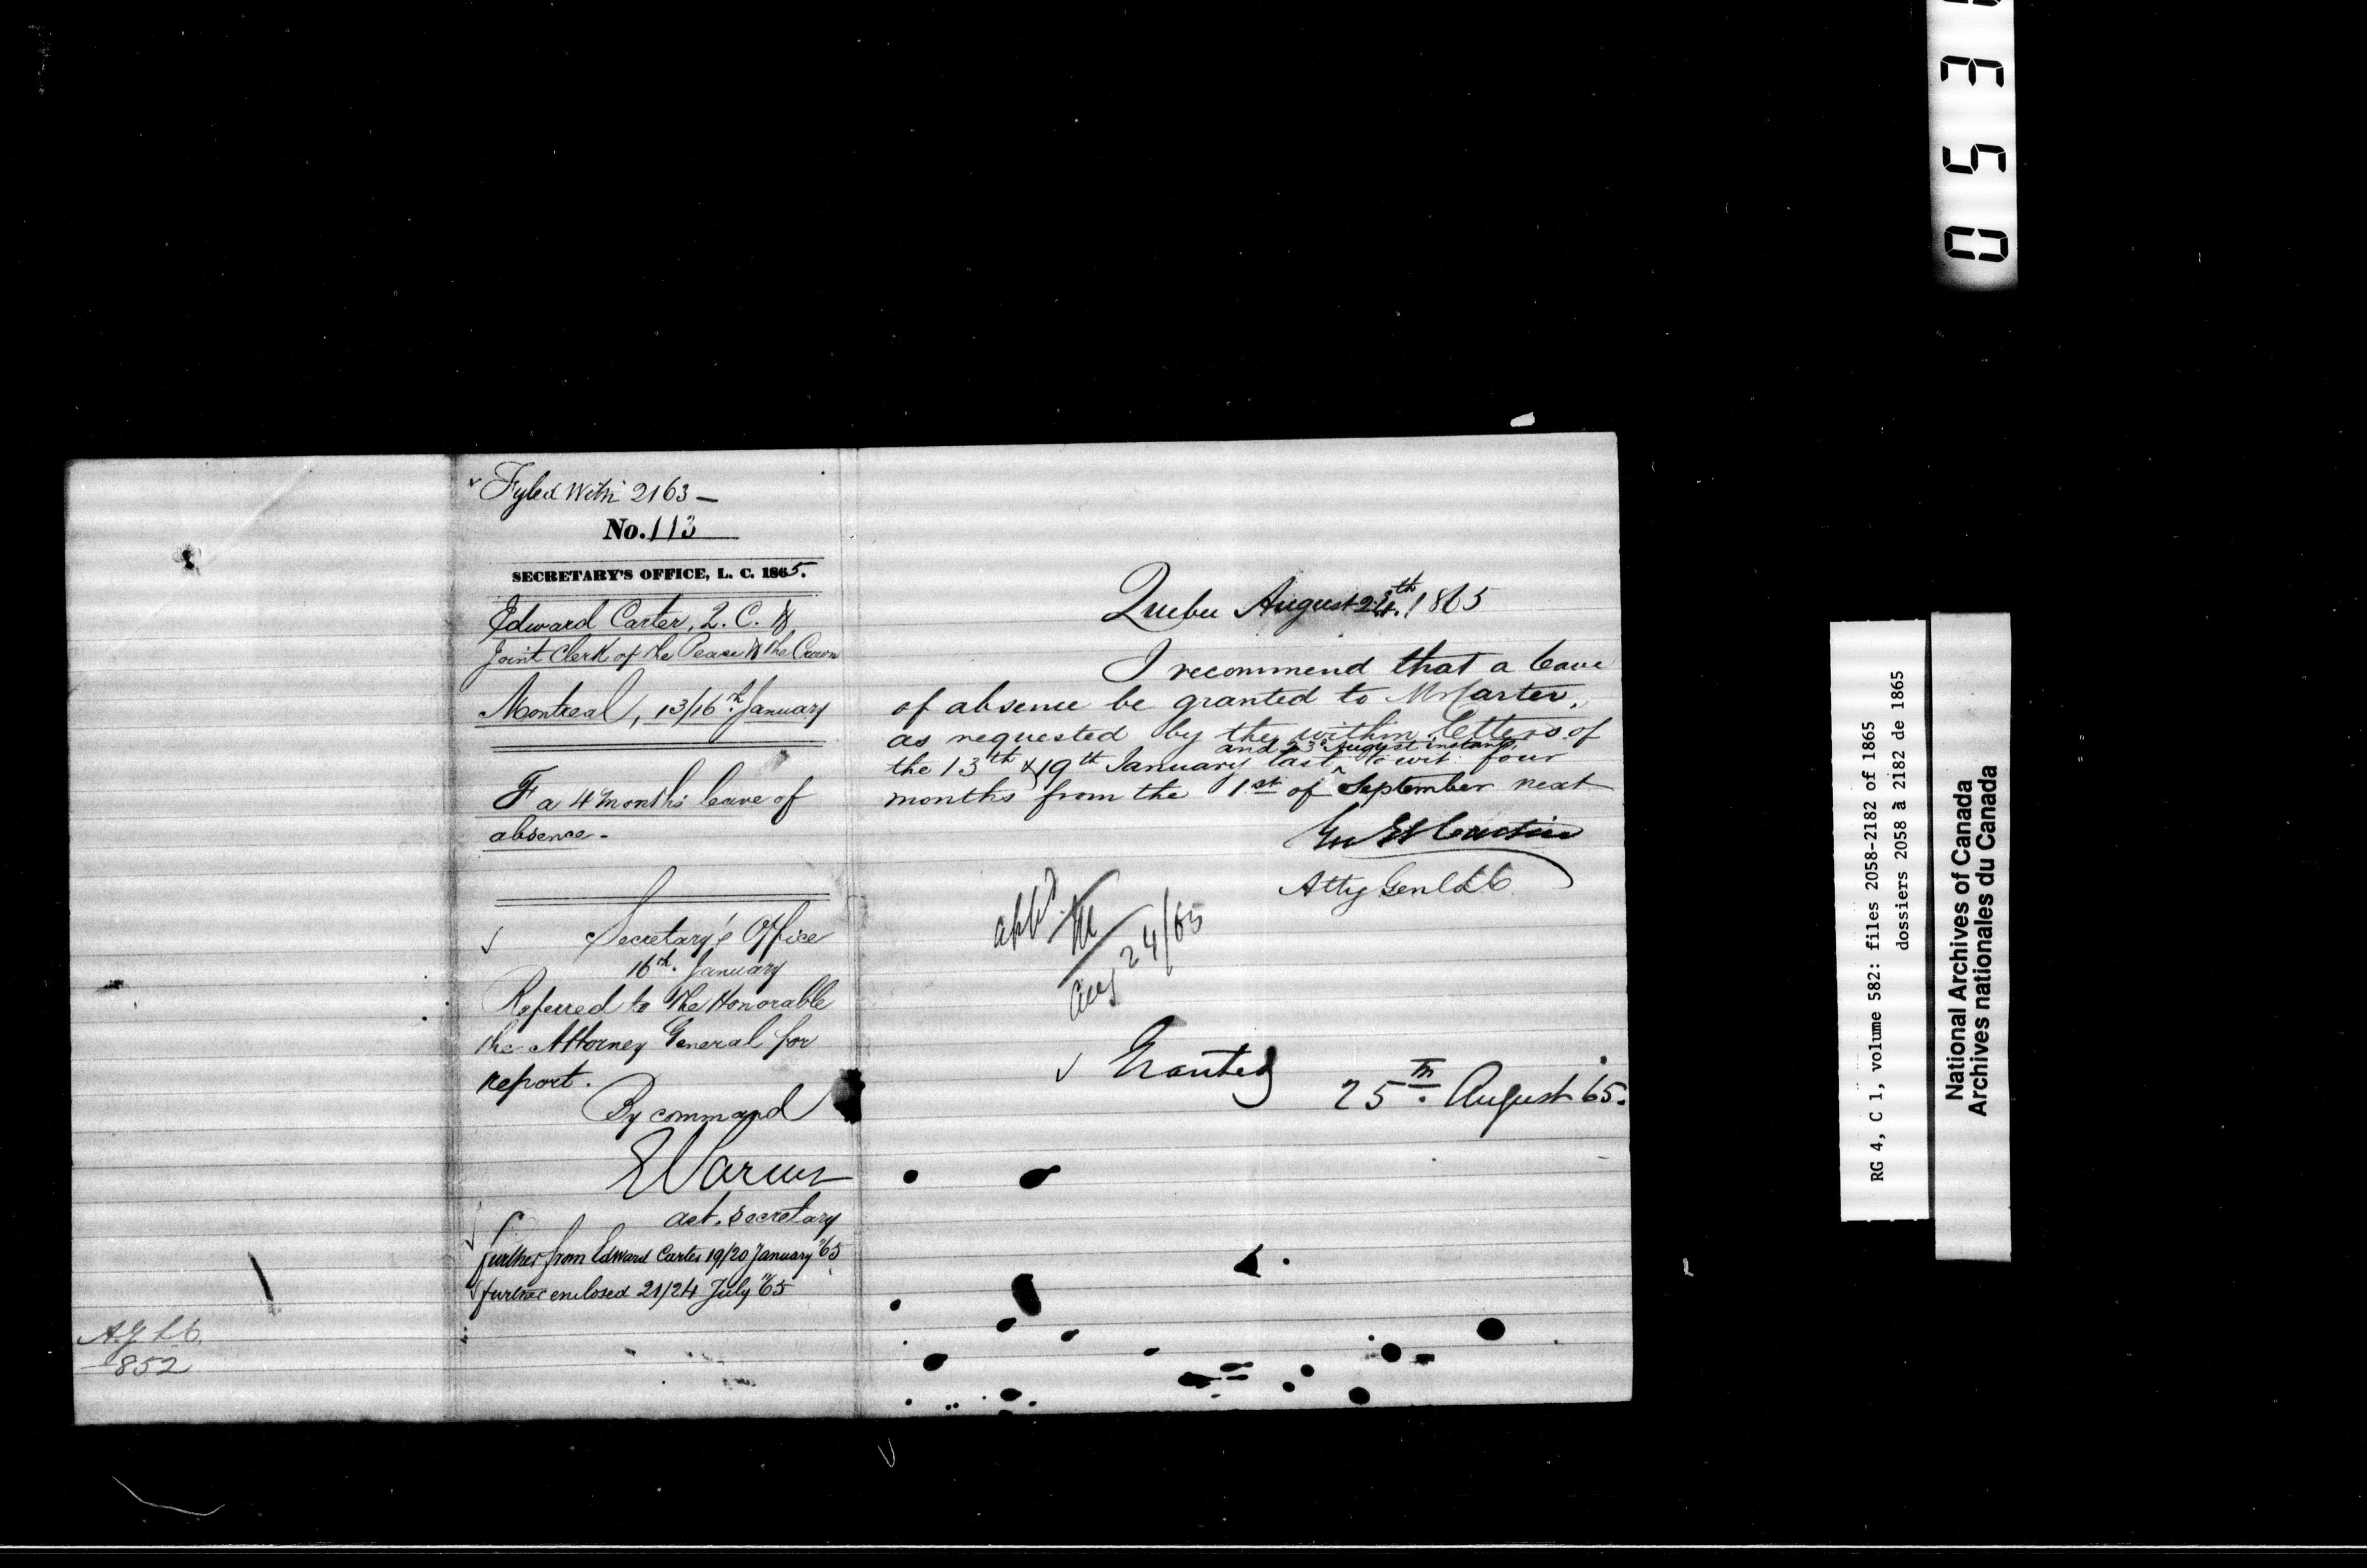 Fyled With 2163 —
No. 113
SECRETARY'S OFFICE, L. C. 1865.
Edward Carter, Q. C. &
Joint Clerk of the Peace & the Crown
Montreal, 13/16th January
F a 4 months leave of
absence -
Secretary's Office
16th. January
Referred to the Honorable
the Attorney General for
report.
By command
act. Secretary
further from Edward Carter 19/20 January /65
further enclosed 21/24 July /65
A.G. L.C.
852
Quebec August 24th. 1865
I recommend that a leave
of absence be granted to Mr Carter,
as requested by the within letters of
and 23d August instant,
the 13th & 19th January last ^ to wit four
months from the 1st of September next
Geo Et Cartier
Atty Genl L C
appd. M
Aug 24/65
Granted
25th. August 65.
0 5 3
RG 4, C 1, volume 582: files 2058-2182 of 1865
dossiers 2058 à 2182 de 1865
National Archives of Canada
Archives nationales du Canada